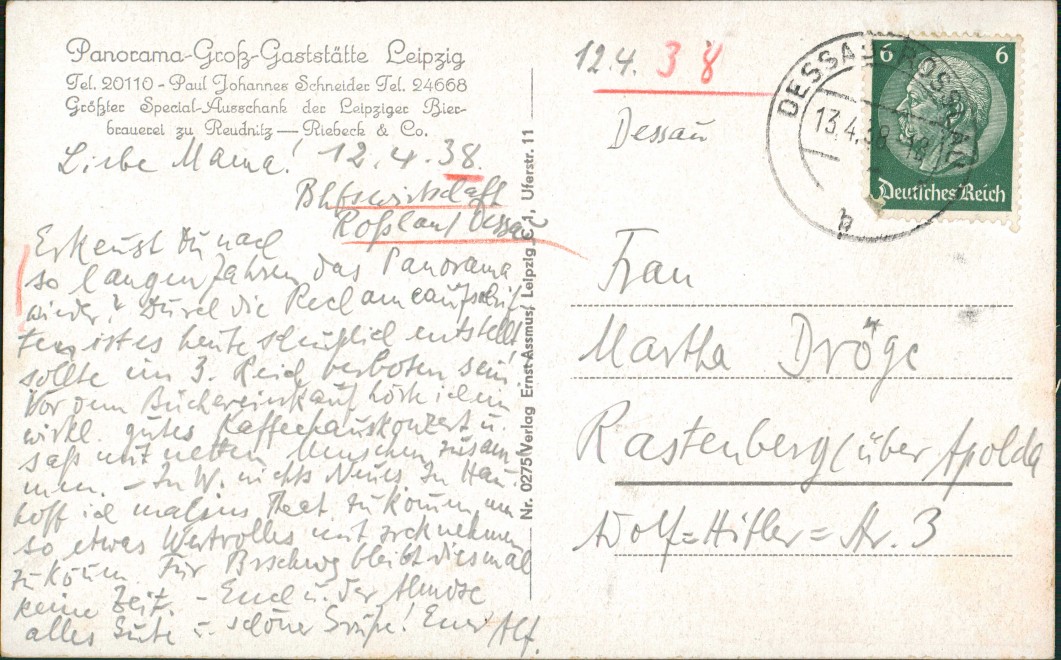 Panorama-Groß-Gaststätte Leipzig
Tel. 20110 - Paul Johannes Schneider Tel. 24668
Größter Special-Ausschank der Leipziger Bier-
brauerei zu Reudnitz — Riebeck & Co.
Liebe Mama! 12.4.38.
Bhfswirtschaft
Roßlau/Dessau
Erkennst Du nach
so langen Jahren das Panorama
wieder? Durch die Reclameaufschrif-
ten ist es heute scheußlich entstellt
sollte im 3. Reich verboten sein!
Vor dem Büchereinkauf hörte ich ein
wirkl. gutes Kaffeehauskonzert u.
saß mit netten Menschen zusam-
men. - In W. nichts Neues. In Han.
hoff ich mal ins Theat. zu könn, um
so etwas Wertvolles mit zurücknehmen
zu könn. Für Brschwg bleibt diesmal
keine Zeit. - Euch u. der
alles Gute u. schöne Grüße! Euer Alf.
Nr. 0275 Verlag Ernst Assmus, Leipzig C 1, Uferstr. 11
12.4. 38
Dessau
DESSAU ROSSLAU
13.4.38
b
6 6
Deutsches Reich
Frau
Martha Dröge
Rastenberg (über Apolda
Adolf=Hitler=Str. 3